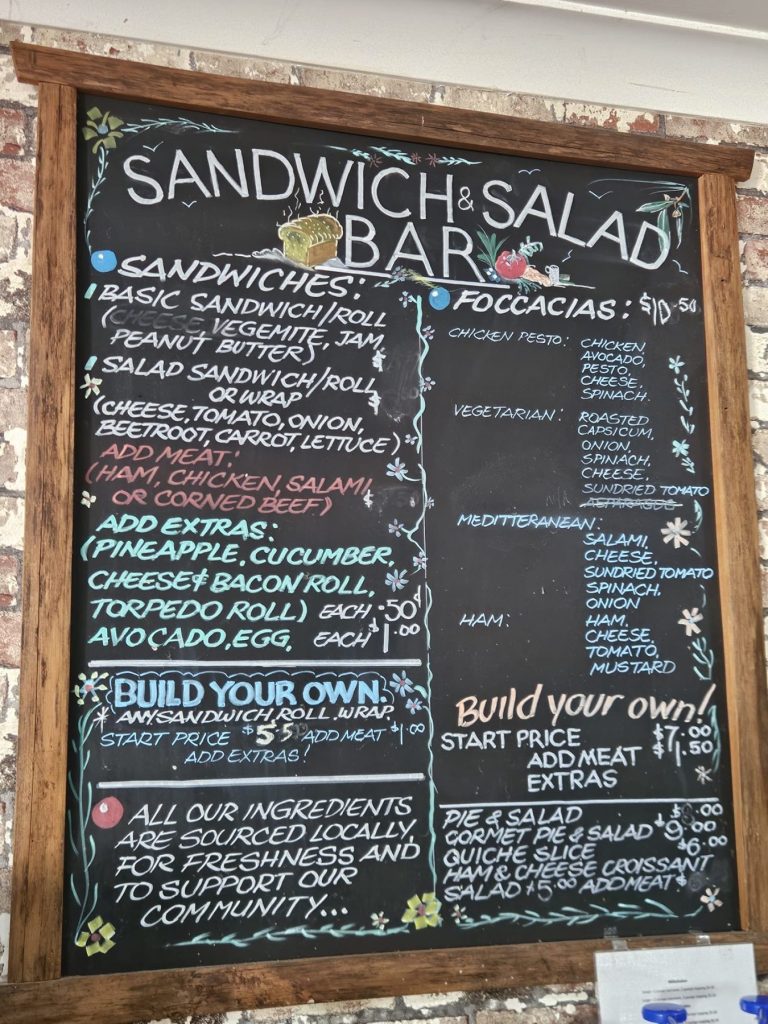 SANDWICH & SALAD
BAR
SANDWICHES:
BASIC SANDWICH/ROLL
(CHEESE, VEGEMITE, JAM,
PEANUT BUTTER) $
SALAD SANDWICH/ROLL
OR WRAP $
(CHEESE, TOMATO, ONION,
BEETROOT, CARROT, LETTUCE)
ADD MEAT:
(HAM, CHICKEN, SALAMI,
OR CORNED BEEF) $
ADD EXTRAS:
(PINEAPPLE, CUCUMBER,
CHEESE & BACON ROLL,
TORPEDO ROLL) EACH .50¢
AVOCADO, EGG, EACH $1.00
BUILD YOUR OWN.
ANY SANDWICH, ROLL, WRAP.
START PRICE ADD MEAT $1.00
ADD EXTRAS!
ALL OUR INGREDIENTS
ARE SOURCED LOCALLY,
FOR FRESHNESS AND
TO SUPPORT OUR
COMMUNITY...
FOCCACIAS: $10.50
CHICKEN PESTO: CHICKEN
AVOCADO,
PESTO,
CHEESE,
SPINACH.
VEGETARIAN: ROASTED
CAPSICUM,
ONION,
SPINACH,
CHEESE,
SUNDRIED TOMATO
ASPARAGUS
MEDITTERANEAN:
SALAMI,
CHEESE,
SUNDRIED TOMATO
SPINACH,
ONION
HAM: HAM,
CHEESE,
TOMATO,
MUSTARD
Build your own!
START PRICE $7.00
ADD MEAT $1.50
EXTRAS
PIE & SALAD
GORMET PIE & SALAD $9.00
QUICHE SLICE $6.00
HAM & CHEESE CROISSANT
SALAD $5.00 ADD MEAT $